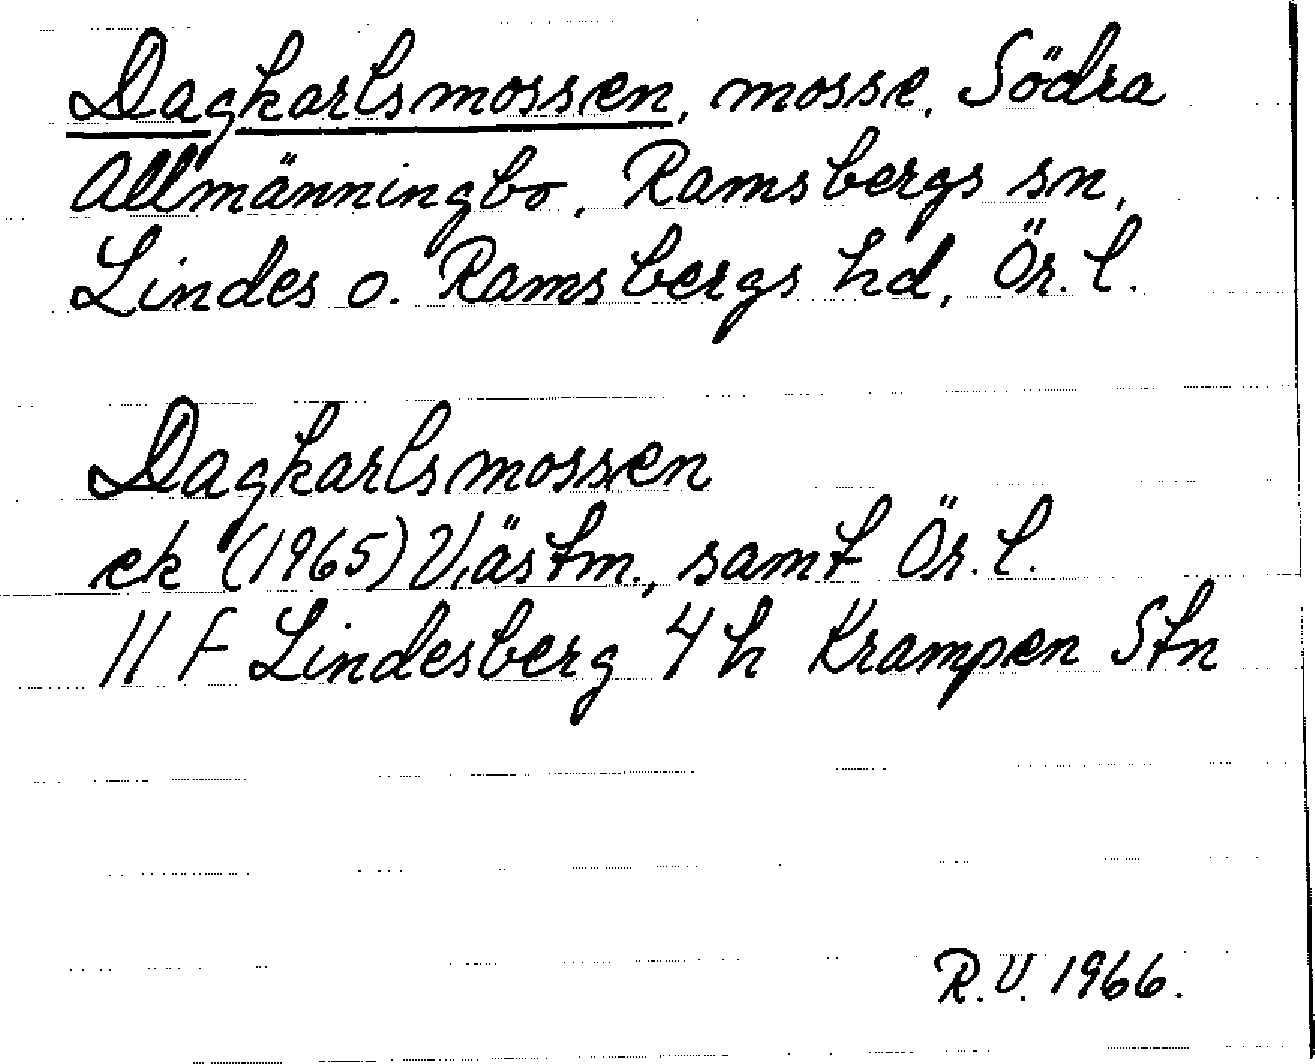 Dagkarlsmossen, mosse, Södra
Allmänningbo, Ramsbergs sn,
Lindes o. Ramsbergs hd, Ör. l.
Dagkarlsmossen
ek (1965) V, ästm., samt Ör. l.
11 F Lindesberg 4 h Krampen Stn
R.V. 1966.